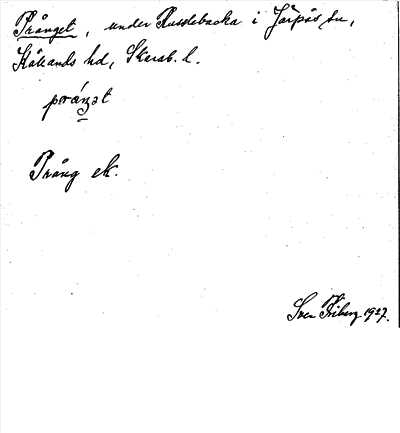 Prånget, under Russlebacka i Järpås sn,
Kållands hd, Skarab. l.
pråŋət
Prång ek.
Sven Friberg 1927.